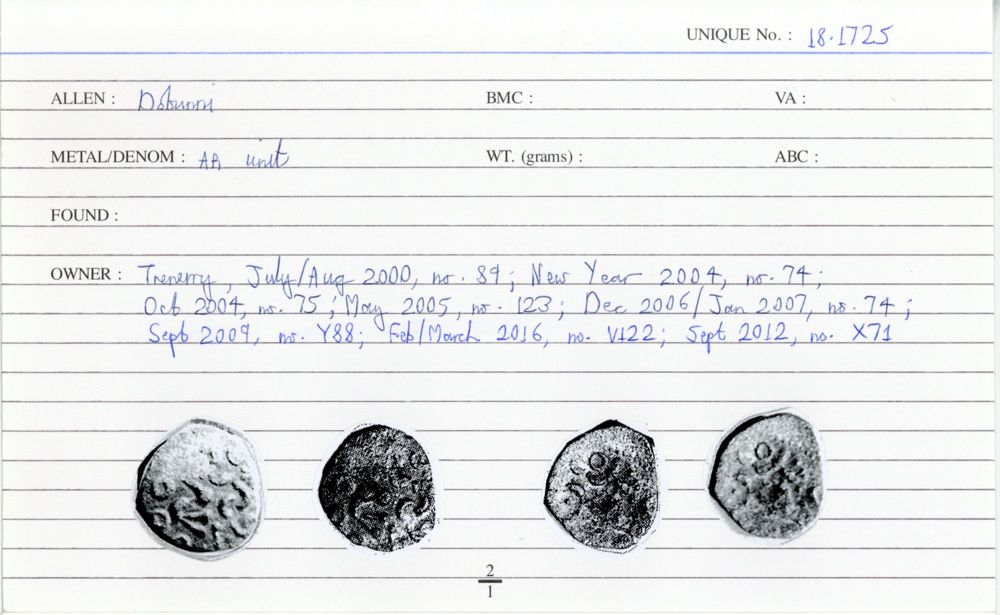 UNIQUE No. : 18.1725
ALLEN : Dobunni BMC : VA :
METAL/DENOM : AR unit WT. (grams) : ABC :
FOUND :
OWNER : Trenerry, July/Aug 2000, no. 89; New Year 2004, no. 74;
Oct 2004, no. 75; May 2005, no. 123; Dec 2006/Jan 2007, no. 74;
Sept 2009, no. Y88; Feb/March 2016, no. V122; Sept 2012, no. X71
2
1